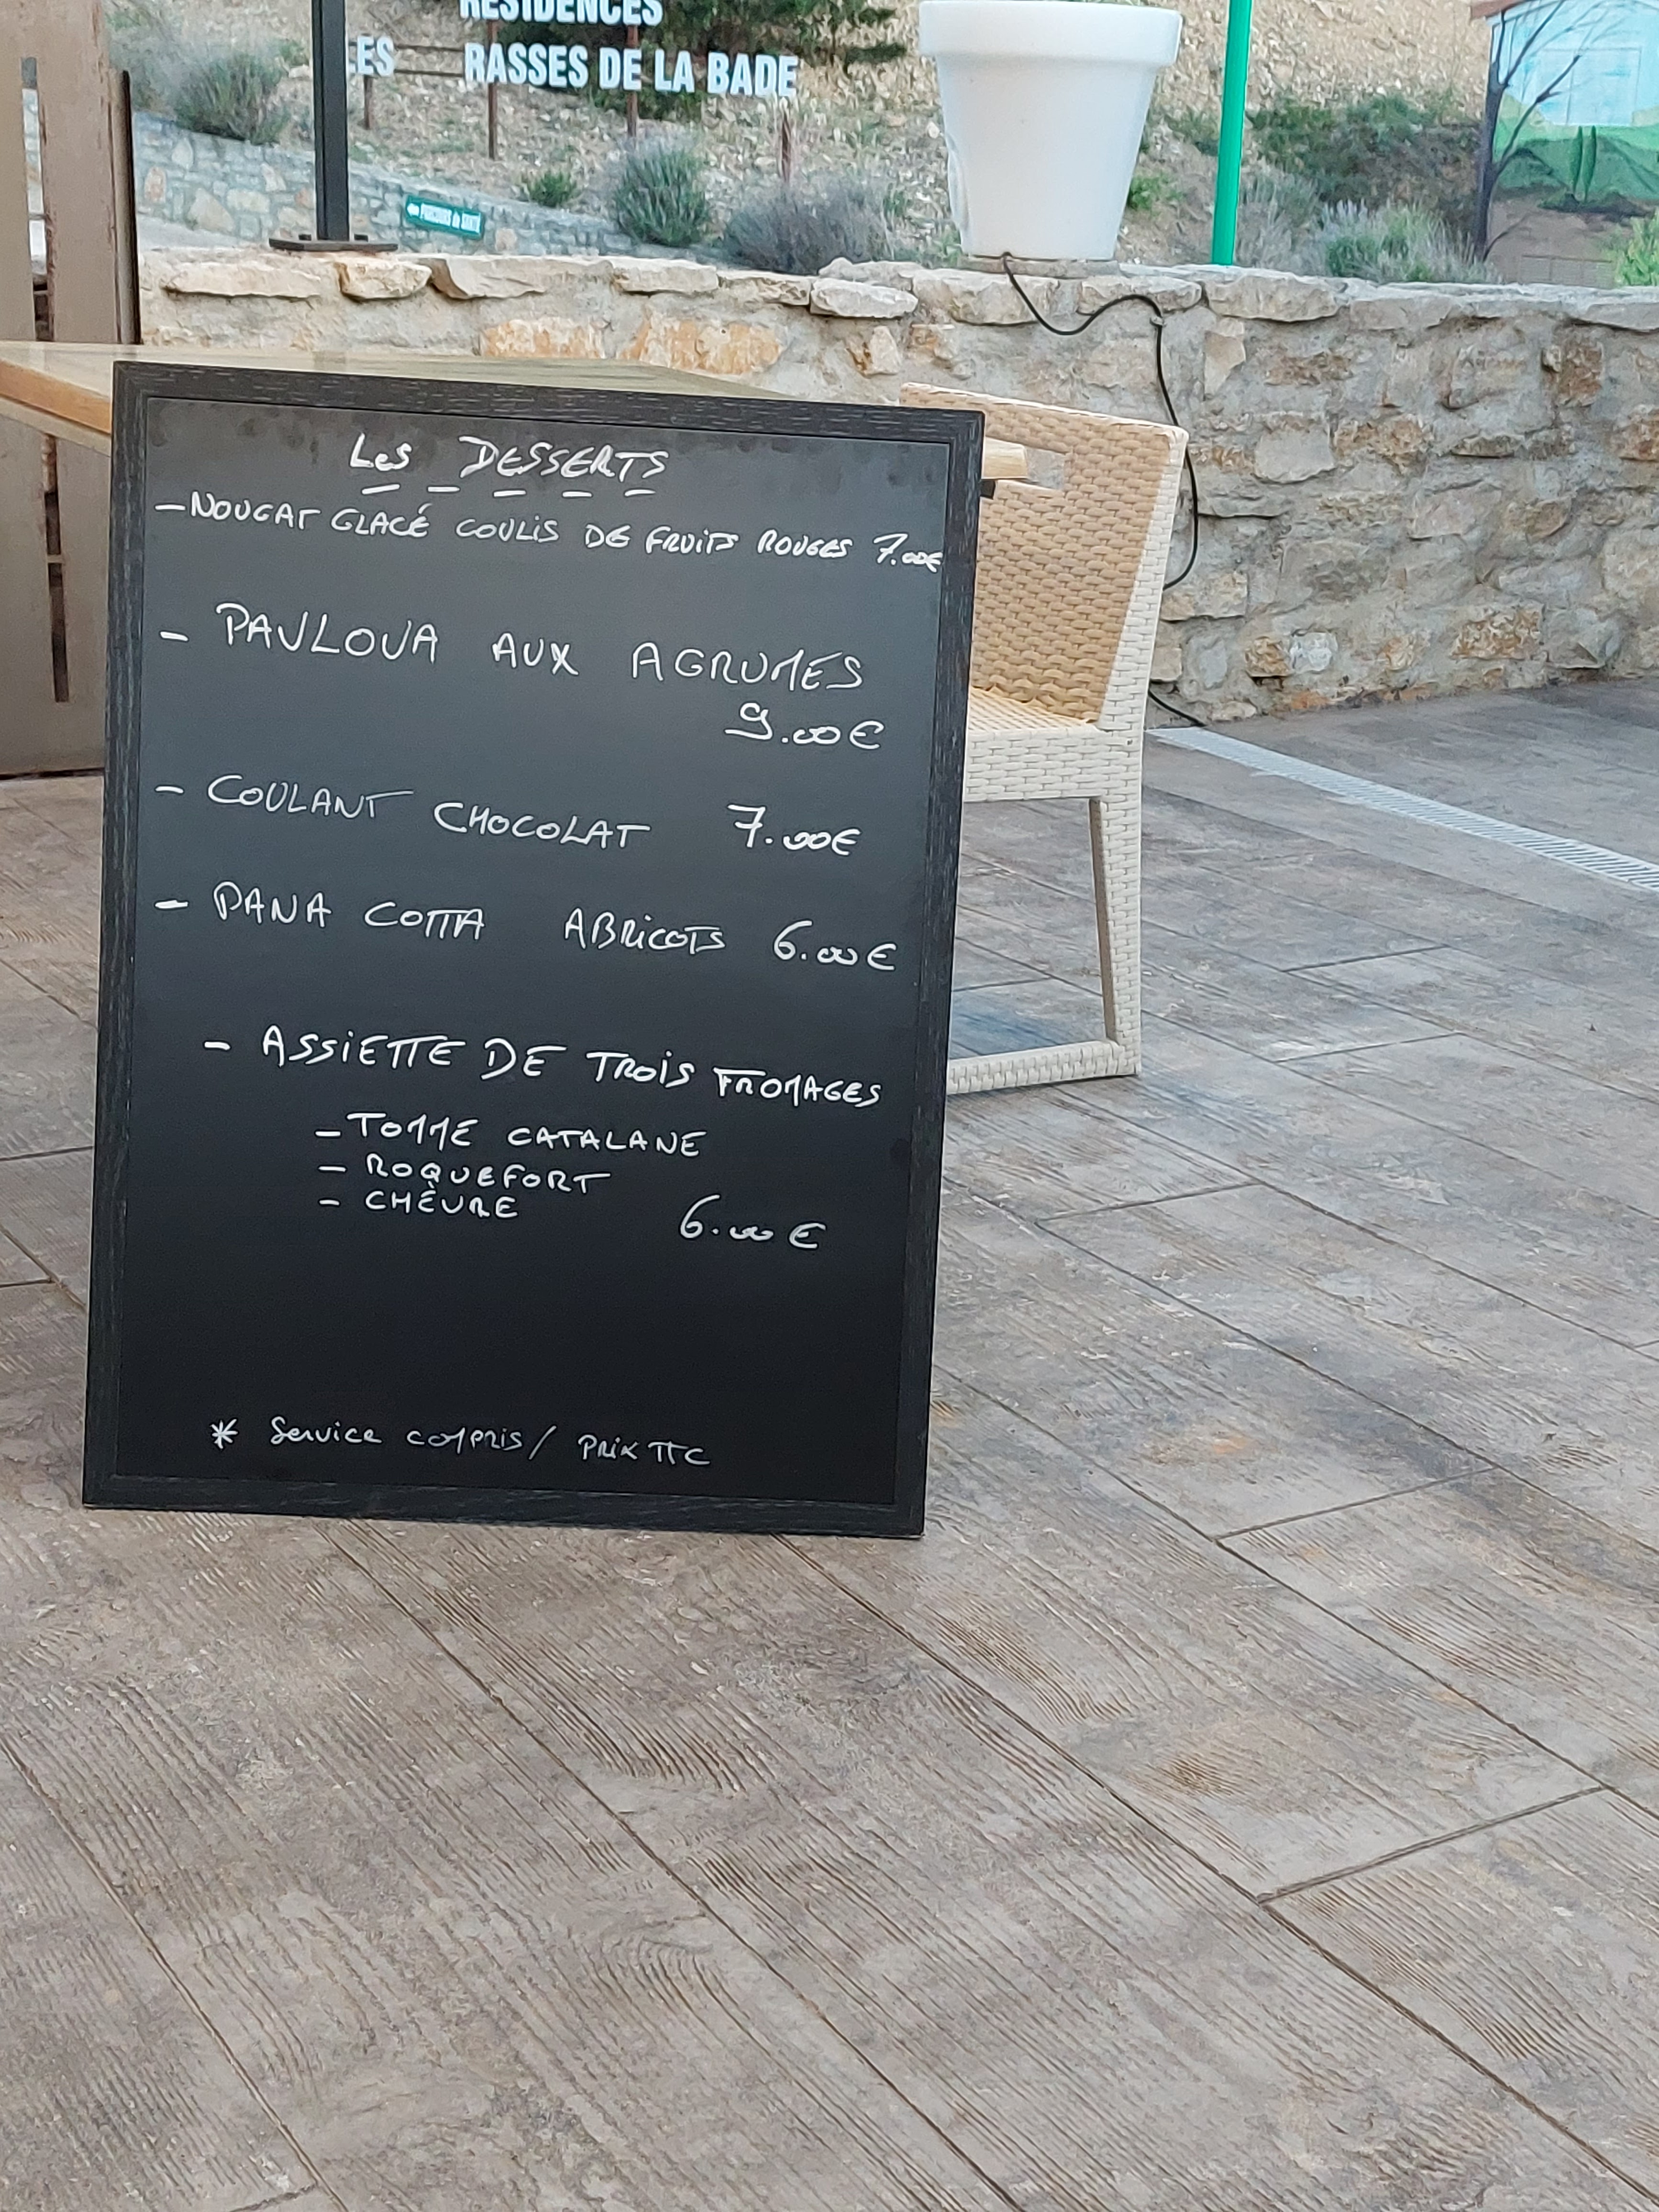 RÉSIDENCES
LES RASSES DE LA BADE
PARCOURS de SANTÉ
Les DESSERTS
- NOUGAT GLACÉ COULIS DE FRUITS ROUGES 7.00€
- PAVLOVA AUX AGRUMES
9.00€
- COULANT CHOCOLAT 7.00€
- PANA COTTA ABRICOTS 6.00€
- ASSIETTE DE TROIS FROMAGES
- TOMME CATALANE
- ROQUEFORT
- CHÈVRE
6.00€
* Service compris / PRIX TTC